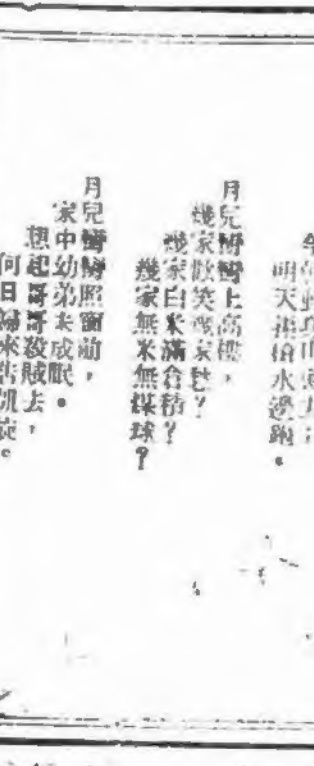 明天 水邊
月兒彎彎上高樓，
幾家歡笑幾家愁？
幾家白米滿倉積？
幾家無米無煤球？
月兒彎彎照窗前，
家中幼弟未成眠。
想起哥哥殺賊去，
何日歸來告凱旋。